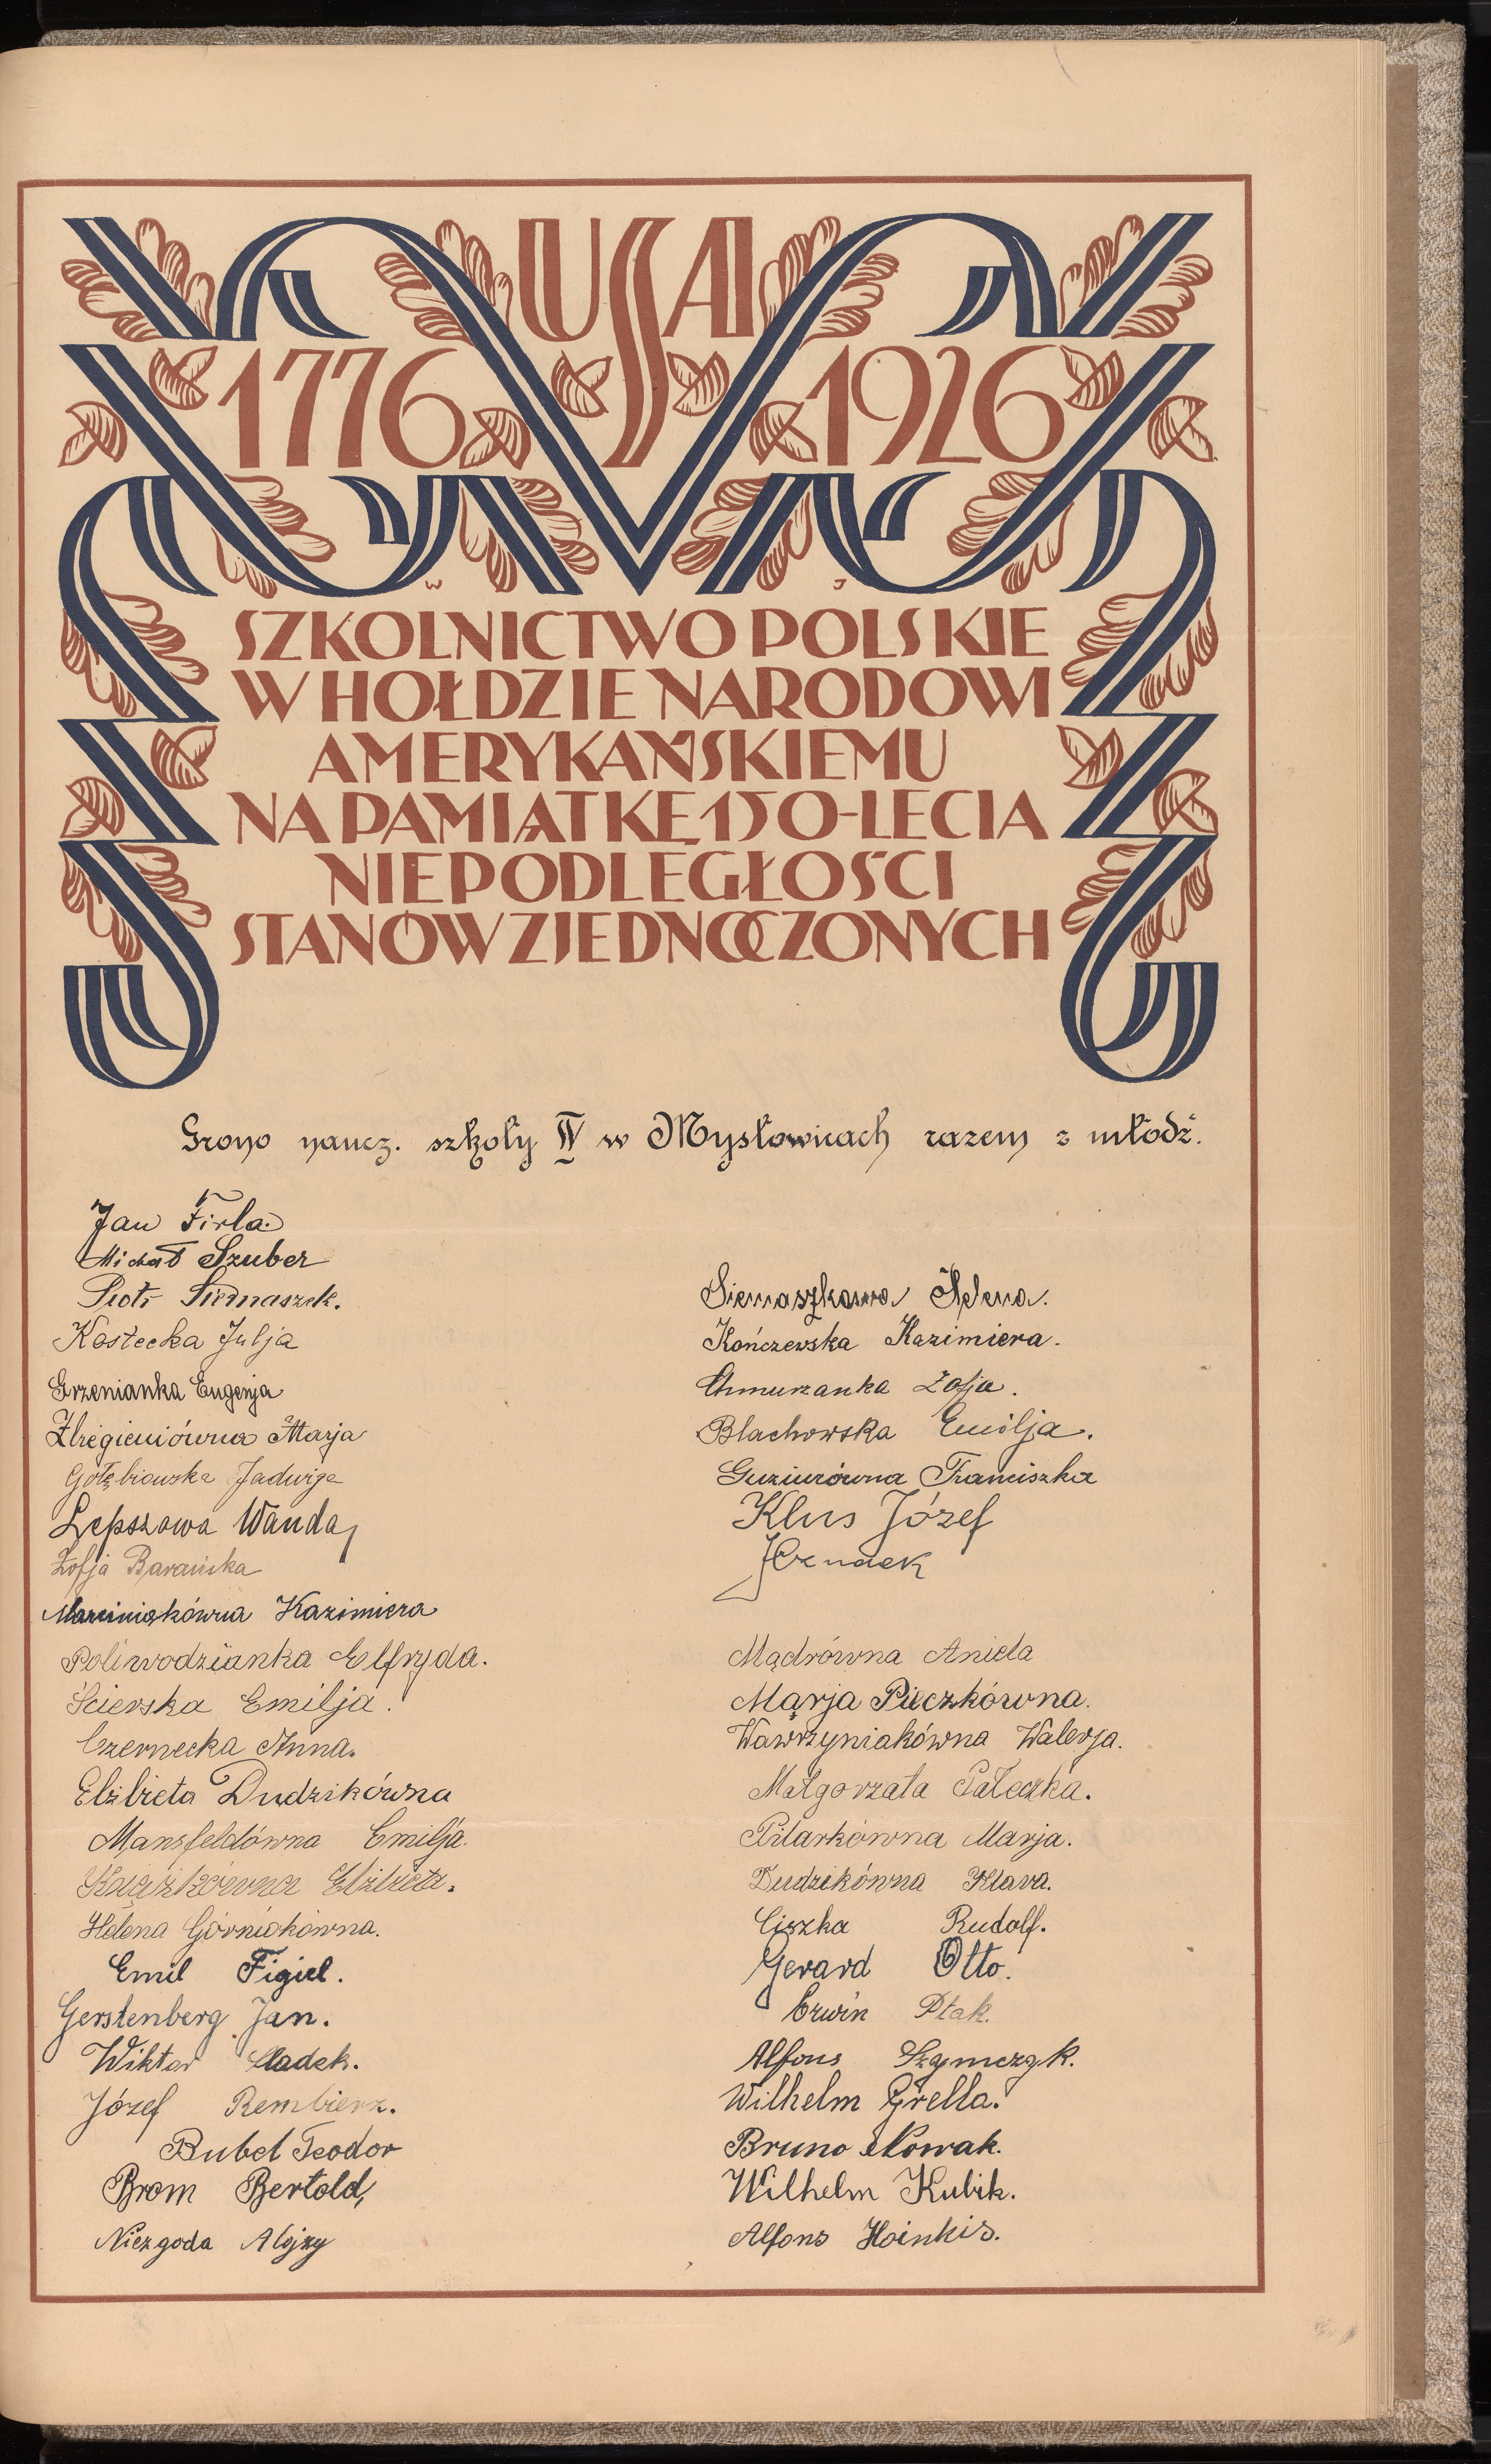 USA
1776 1926
W J
SZKOLNICTWO POLSKIE
W HOŁDZIE NARODOWI
AMERYKAŃSKIEMU
NA PAMIĄTKĘ 150-LECIA
NIEPODLEGŁOŚCI
STANÓW ZJEDNOCZONYCH
Grono naucz. szkoły IV w Mysłowicach razem z młodź.
Jan Firla.
Michał Szuber
Piotr Siemaszek.
Kostecka Julja
Grzenianka Eugenja
Marja
Gołębiowska Jadwiga
Lepszowa Wanda
Zofja Barańska
Marciniakówna Kazimiera
Poliwodzianka Elfryda.
Ścierska Emilja.
Czernecka Anna.
Elżbieta Dudzikówna
Mansfeldówna Emilja.
Książkówna Elżbieta.
Helena Górniokówna.
Emil Figiel.
Gerstenberg Jan.
Wiktor Sladek.
Józef Rembierz.
Bubel Teodor
Brom Bertold,
Niezgoda Alojzy
Siemaszkowa Helena.
Kończewska Kazimiera.
Chmurzanka Zofja.
Blachowska Emilja.
Guziurówna Franciszka
Klus Józef
Mądrówna Aniela
Marja Pieczkówna.
Wawrzyniakówna Walerja.
Małgorzata Pałeczka.
Pilarkówna Marja.
Dudzikówna Klara.
Ciszka Rudolf.
Gerard Otto.
Erwin Ptak.
Alfons Szymczyk.
Wilhelm Grella.
Bruno Nowak.
Wilhelm Kubik.
Alfons Hoinkis.